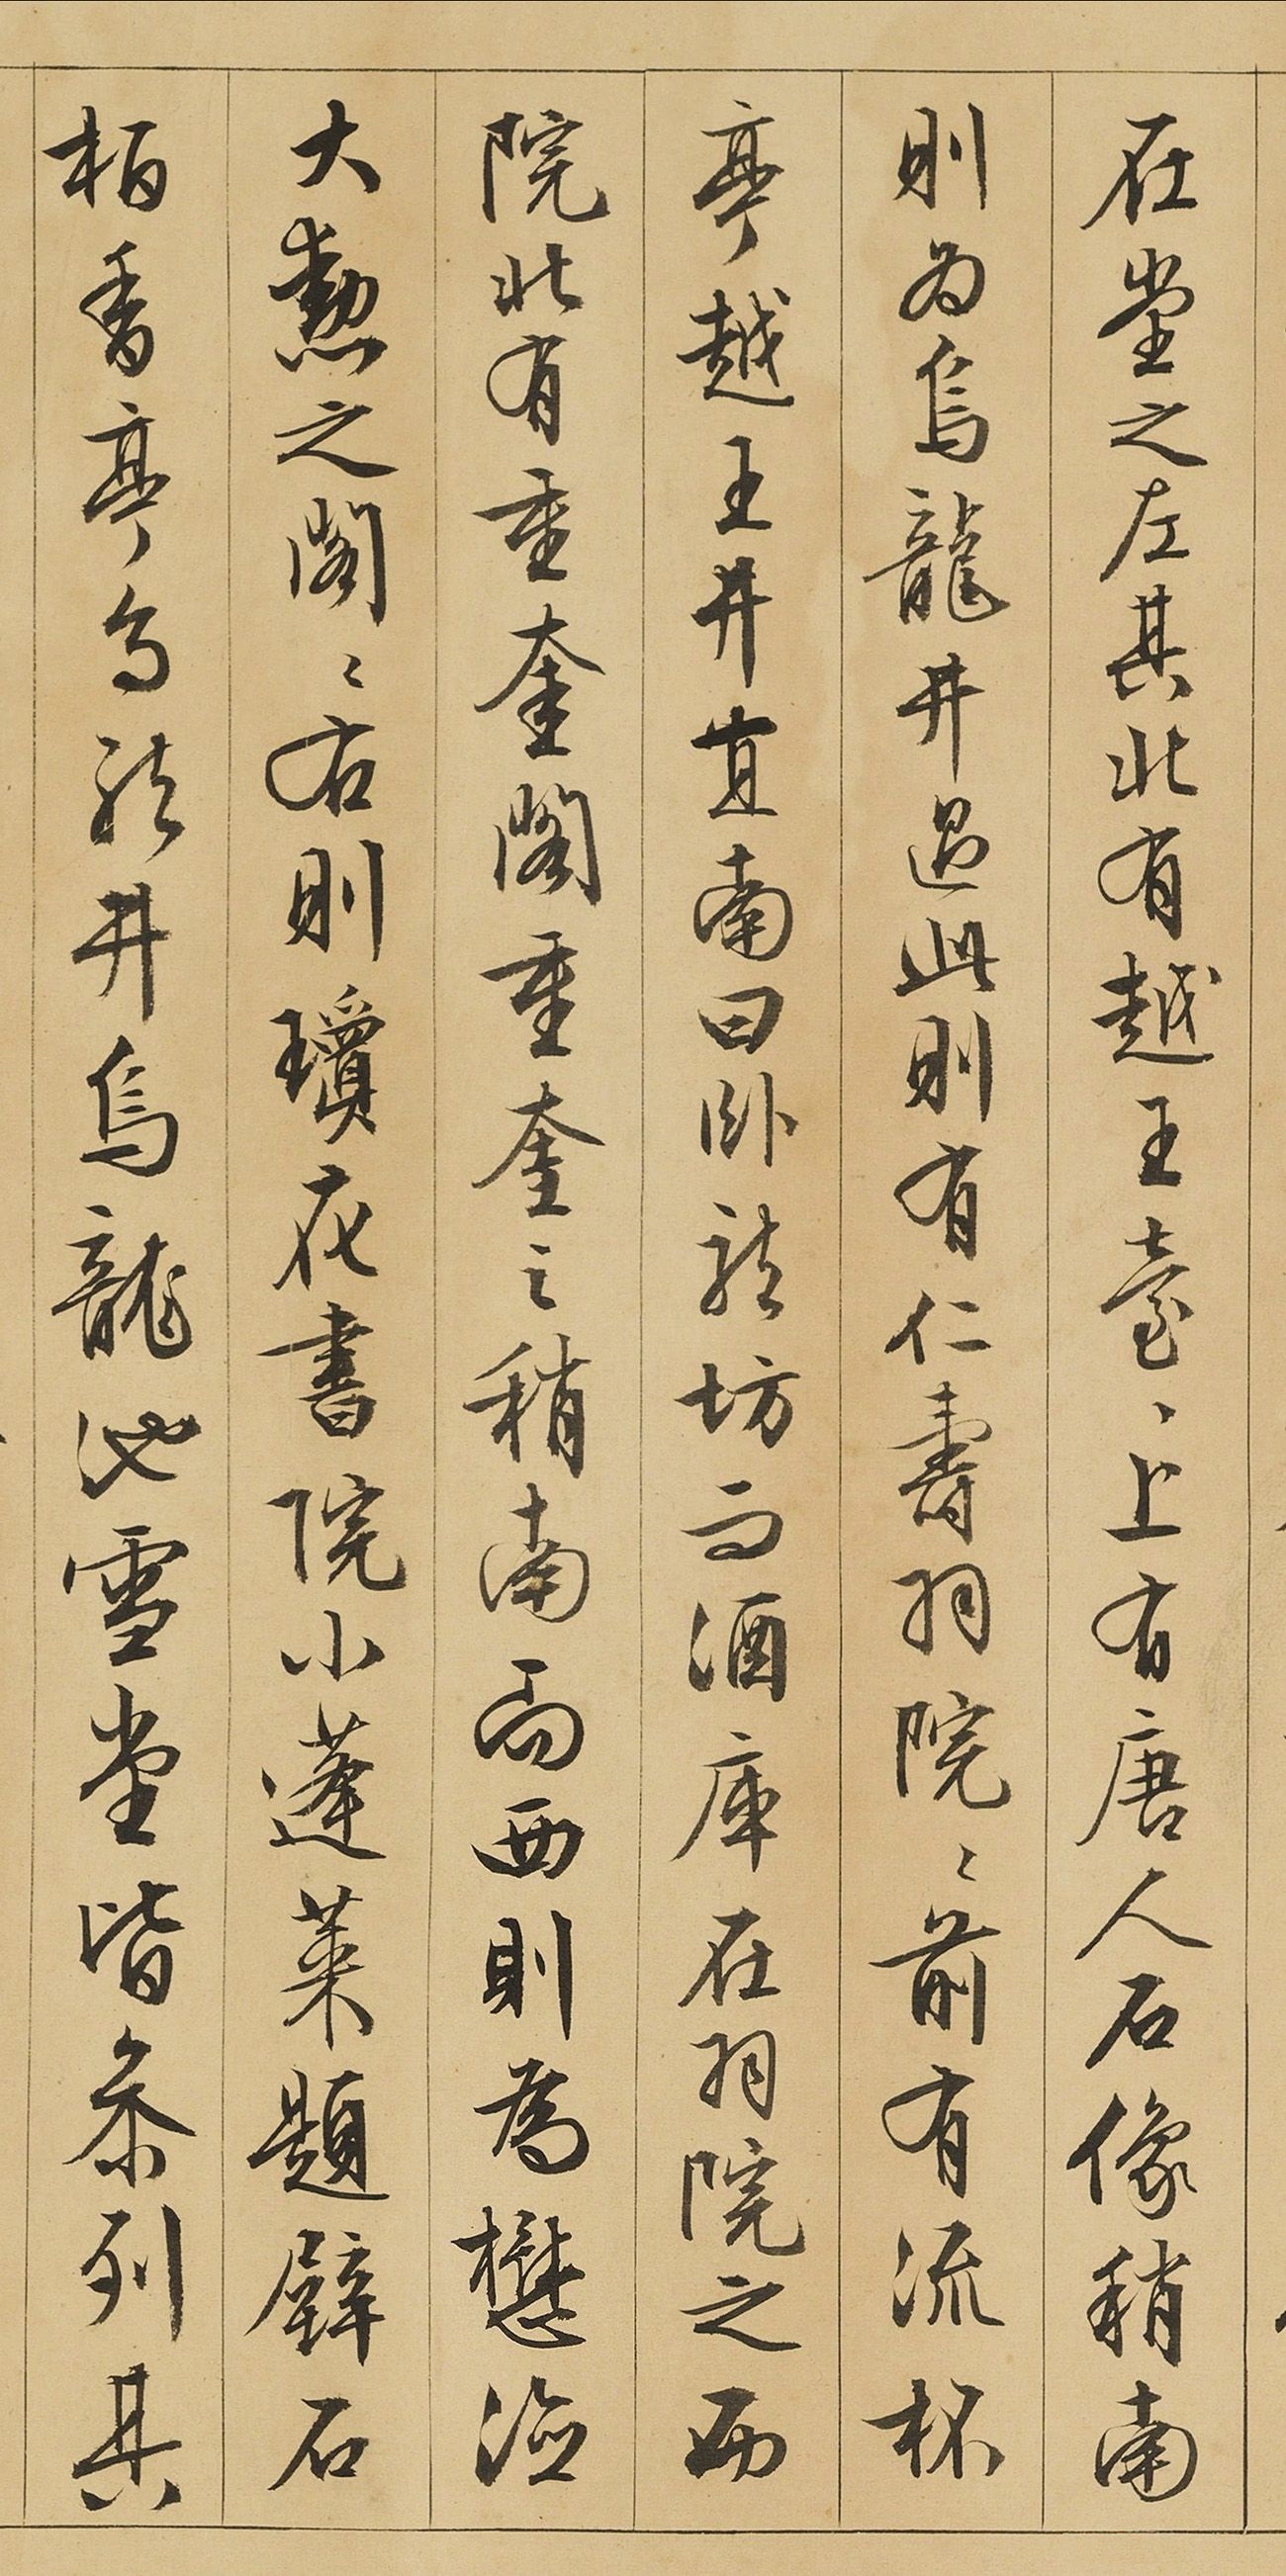 在堂之左其北有越王臺〻上有唐人石像稍南
則为烏龍井過此則有仁壽羽院〻前有流杯
亭越王井直南曰卧龍坊与酒庫在羽院之西
院北有重奎閣重奎之稍南而西則為懋
大勲之閣〻右則瓊花書院小蓬萊題壁石
柏香亭与龍井烏龍池雪堂皆參列其